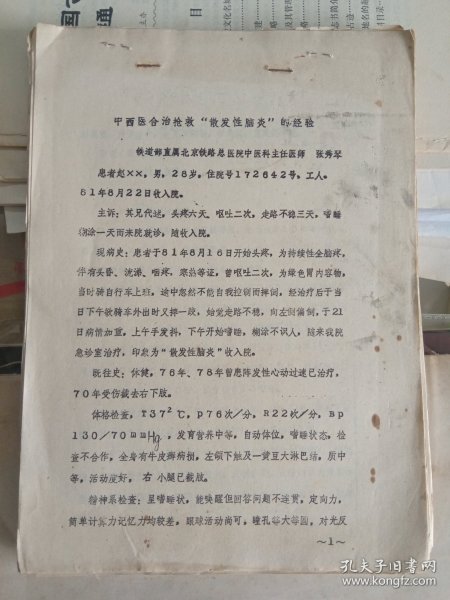 中西医合治抢救“散发性脑炎”的经验
铁道部直属北京铁路总医院中医科主任医师 张秀琴
患者赵××，男，28岁。住院号172642号。工人。
81年8月22日收入院。
主诉：其兄代述。头疼六天，呕吐二次，走路不稳三天，嗜睡
糊涂一天而来院就诊，随收入院。
现病史：患者于81年8月16日开始头疼，为持续性全脑疼，
伴有头昏、流涕、咽疼、寒热等证，曾呕吐二次，为绿色胃内容物，
当时骑自行车上班，途中忽然不能自我控制而摔倒，经治疗后于当
日下午欲骑车外出时又摔一跤，始觉走路不稳，向左侧偏倒，于21
日病情加重，上午手发抖，下午开始嗜睡，糊涂不识人，随来我院
急诊室治疗，印象为“散发性脑炎”收入院。
既往史：体健，76年、78年曾患阵发性心动过速已治疗，
70年受伤截去右下肢。
体格检查，T37²℃，P76次/分，R22次/分，BP
130/70mmHg，发育营养中等，自动体位，嗜睡状态，检
查不合作，全身有牛皮癣病损，左颌下触及一黄豆大淋巴结，质中
等，活动度好，右小腿已截肢。
精神系检查：呈嗜睡状，能唤醒但回答问题不连贯，定向力，
简单计算力记忆力均较差，眼球活动尚可，瞳孔等大等圆，对光反
～1～
孔夫子旧书网
www.kongfz.com